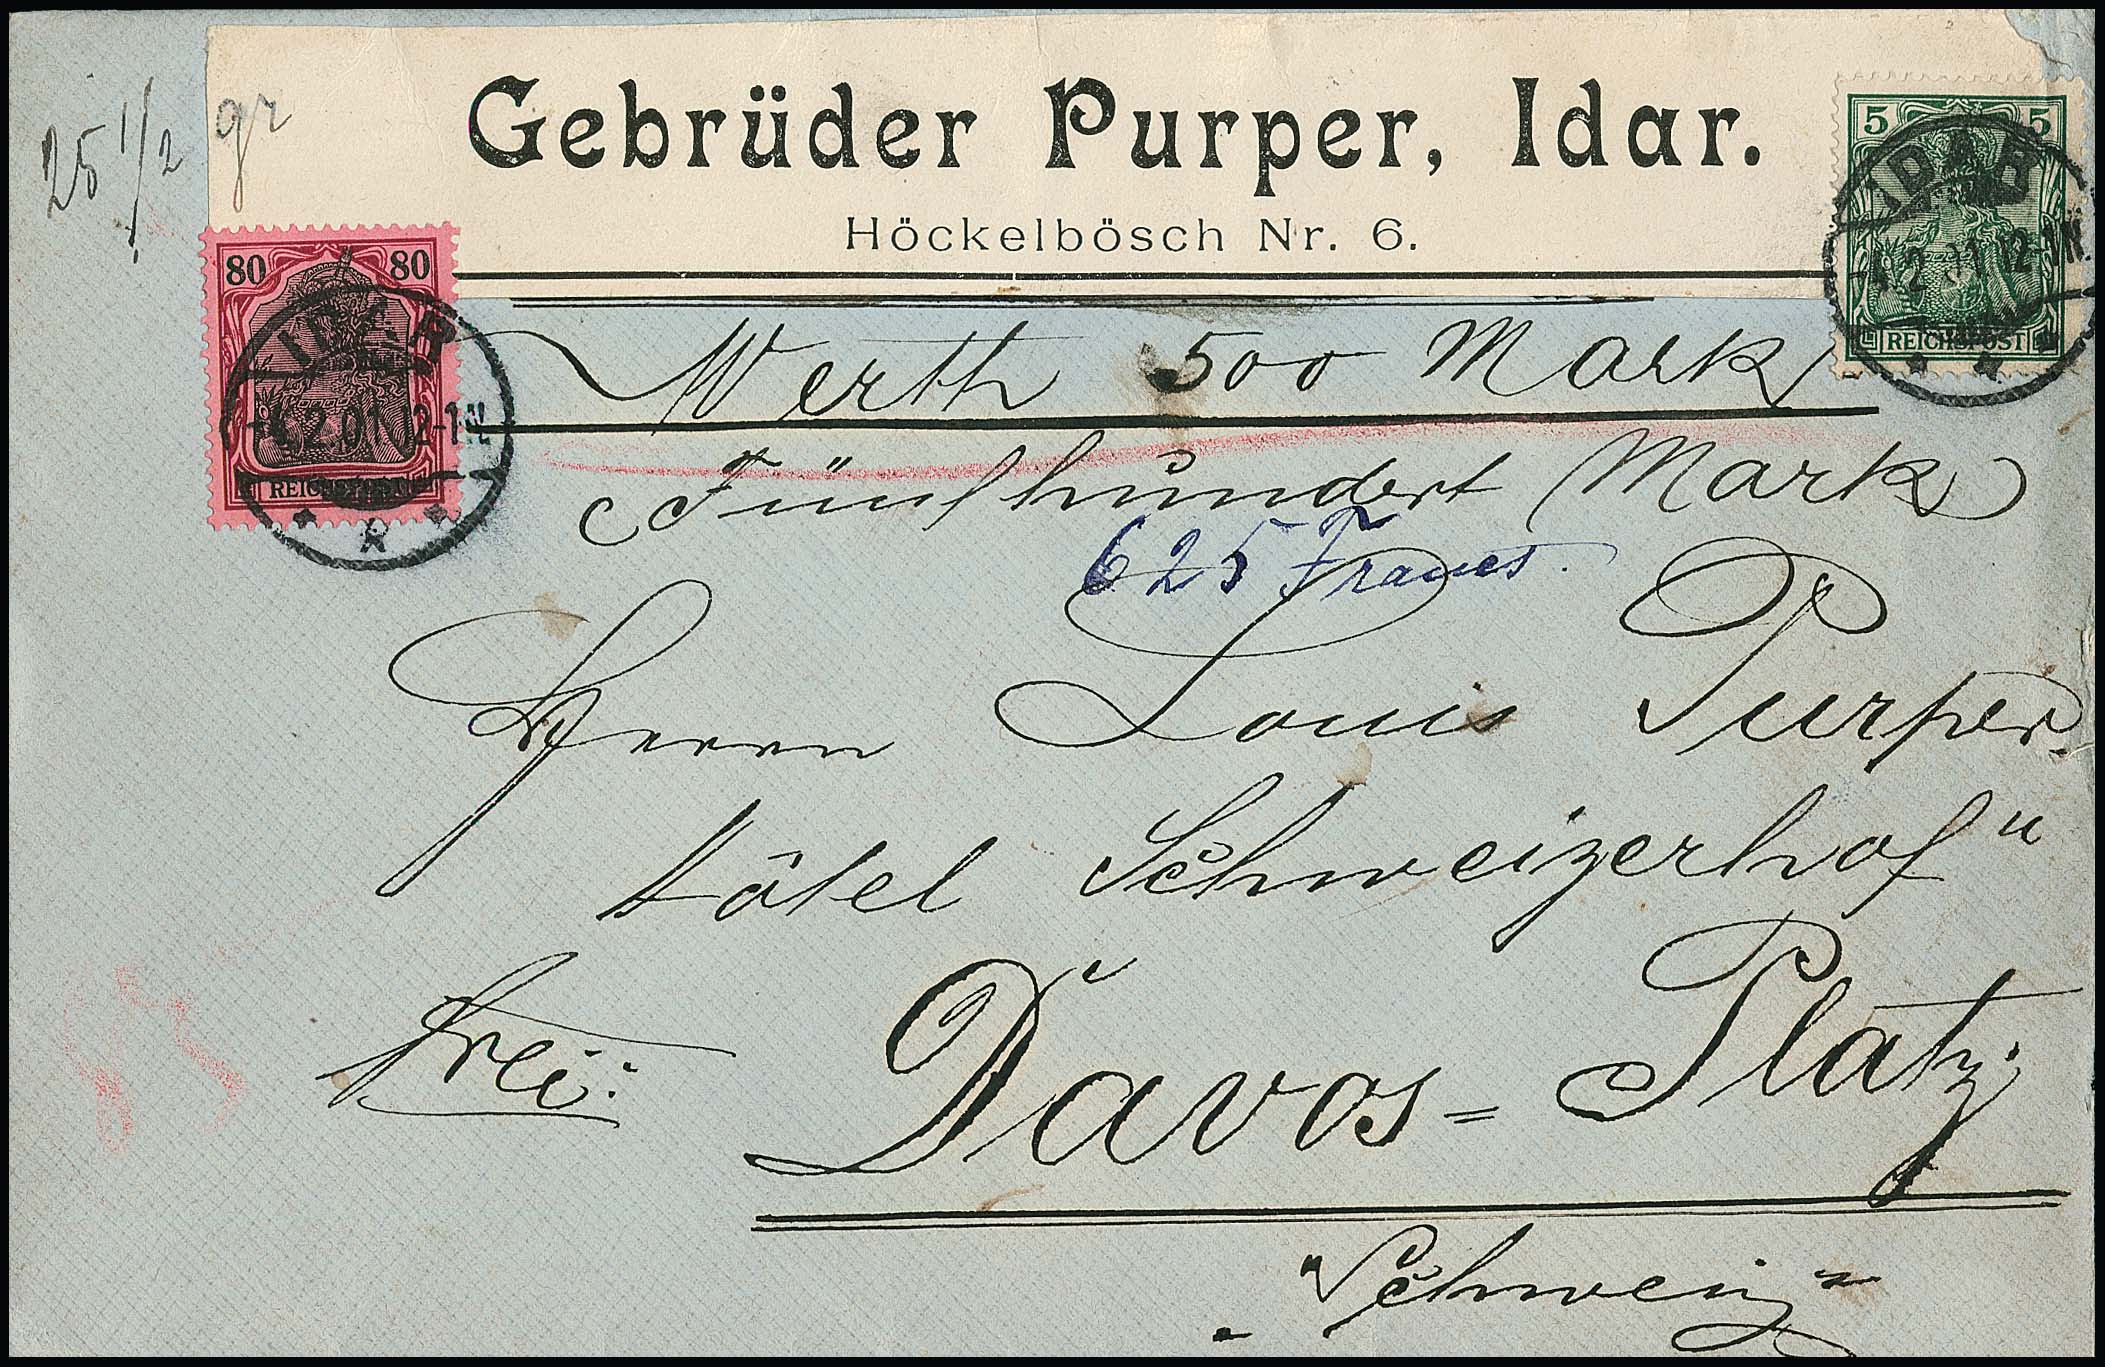 25 1/2 gr
Gebrüder Purper, Idar.
Höckelbösch Nr. 6.
80 80
REICHSPOST
IDAR
-4.2.01.12-1N.
5 5
REICHSPOST
IDAR
-4.2.01.12-1N.
Werth 500 Mark
(Fünfhundert Mark)
625 Francs.
Herrn Louis Purper.
Hôtel Schweizerhof"
frei:
Davos=Platz;
"Schweiz"